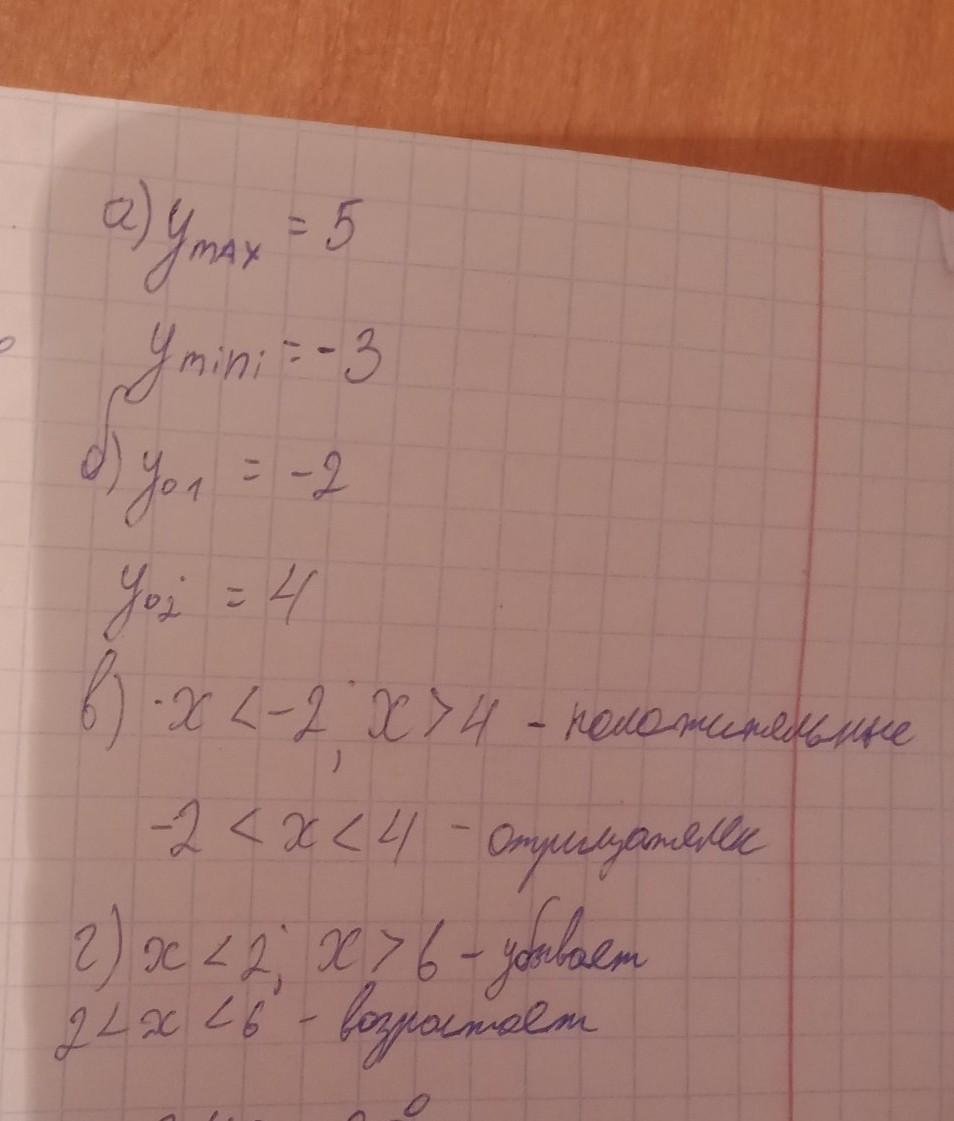 а) ymax = 5
ymini = -3
б) y01 = -2
y02 = 4
в) x < -2; x > 4 - положительные
-2 < x < 4 - отрицательн
г) x < 2; x > 6 - убывает
2 < x < 6 - возрастает